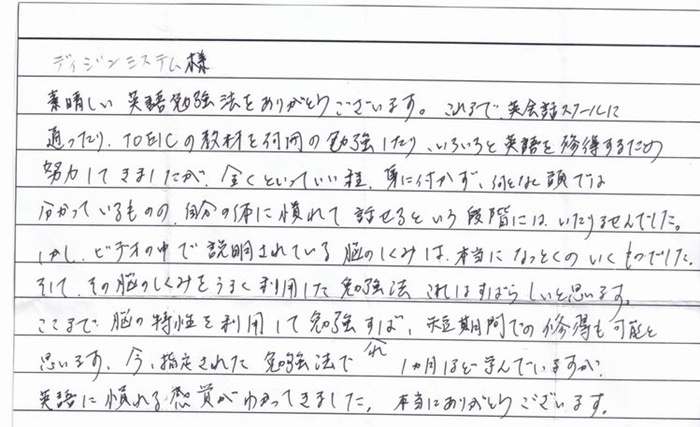 ディジシステム様
素晴しい英語勉強法をありがとうございます。これまで、英会話スクールに
通ったり、TOEICの教材を何冊の勉強したり、いろいろと英語を修得するため
努力してきましたが、全くといっていい程、身に付かず、何となく頭では
分かっているものの、自分の体に慣れて話せるという段階には、いたりませんでした。
しかし、ビデオの中で説明されている脳のしくみは、本当になっとくのいくものでした。
そして、その脳のしくみをうまく利用した勉強法 これはすばらしいと思います。
ここまで脳の特性を利用して勉強すれば、短期間での修得も可能と
思います。今、指定された勉強法で 1ヵ月ほど学んでいますが、
英語に慣れる感覚がわかってきました。本当にありがとうございます。